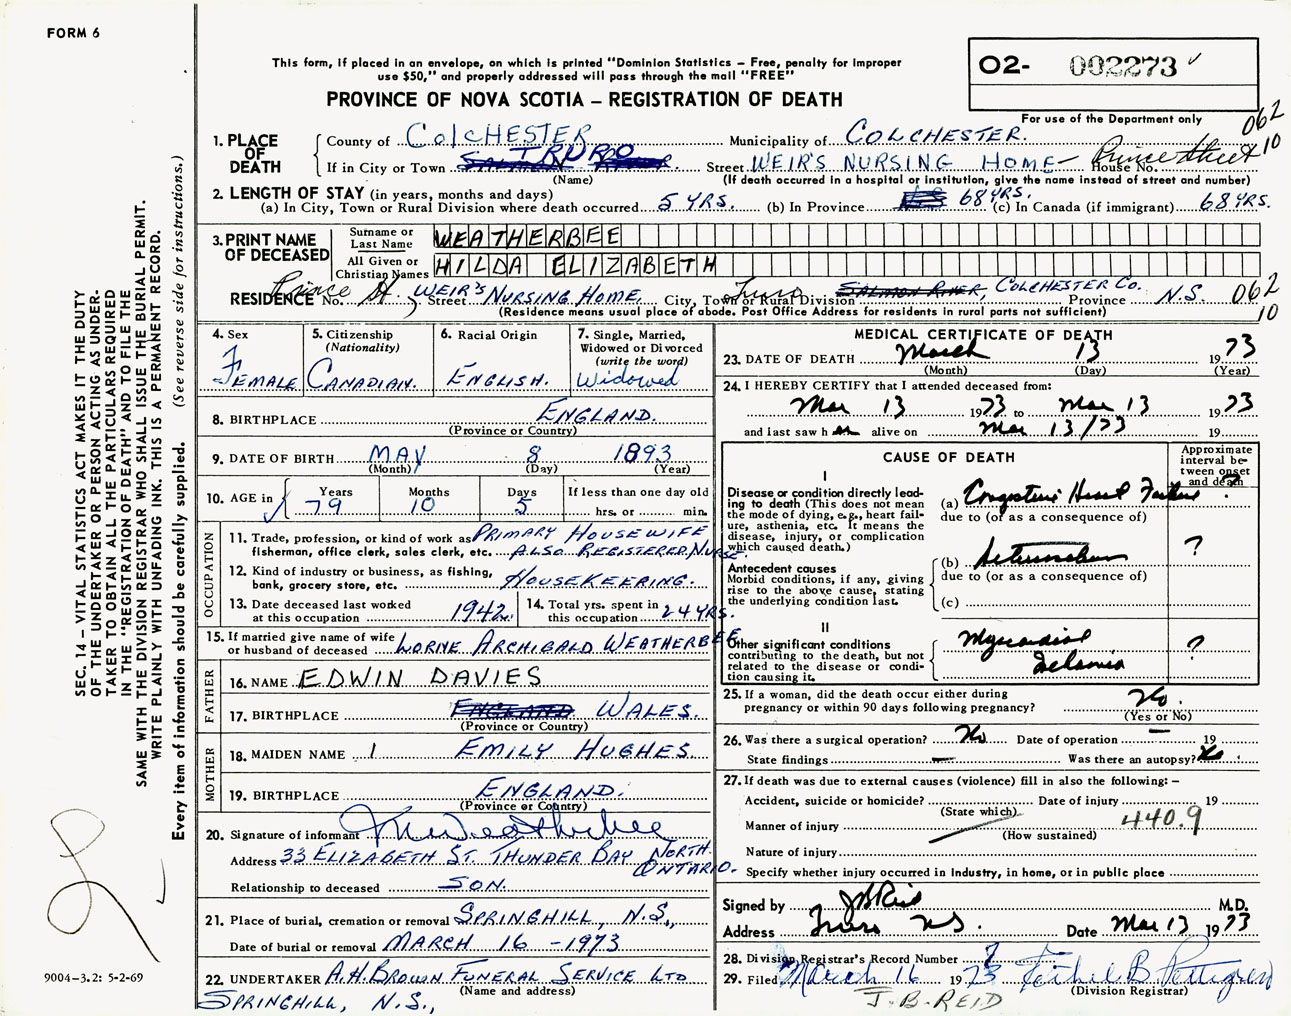 FORM 6
This form, if placed in an envelope, on which is printed "Dominion Statistics – Free, penalty for improper
use $50," and properly addressed will pass through the mail "FREE"
PROVINCE OF NOVA SCOTIA – REGISTRATION OF DEATH
O2- 002273
For use of the Department only
062
10
1. PLACE OF DEATH
County of COLCHESTER Municipality of COLCHESTER.
If in City or Town TRURO Street WEIR'S NURSING HOME – Prince Street House No.
(Name) (If death occurred in a hospital or institution, give the name instead of street and number)
2. LENGTH OF STAY (in years, months and days)
(a) In City, Town or Rural Division where death occurred 5 YRS. (b) In Province 68 YRS. (c) In Canada (if immigrant) 68 YRS.
3. PRINT NAME OF DECEASED
Surname or Last Name WEATHERBEE
All Given or Christian Names HILDA ELIZABETH
RESIDENCE No. Prince St. WEIR'S Street NURSING HOME, City, Town or Rural Division Truro SALMON RIVER, COLCHESTER CO. Province N.S. 062
(Residence means usual place of abode. Post Office Address for residents in rural parts not sufficient) 10
4. Sex FEMALE
5. Citizenship (Nationality) CANADIAN.
6. Racial Origin ENGLISH.
7. Single, Married, Widowed or Divorced (write the word) Widowed
8. BIRTHPLACE ENGLAND.
(Province or Country)
9. DATE OF BIRTH MAY 8 1893
(Month) (Day) (Year)
10. AGE in Years 79 Months 10 Days 5 If less than one day old hrs. or min.
OCCUPATION
11. Trade, profession, or kind of work as PRIMARY HOUSEWIFE
fisherman, office clerk, sales clerk, etc. ALSO REGISTERED NURSE.
12. Kind of industry or business, as fishing,
bank, grocery store, etc. HOUSEKEEPING.
13. Date deceased last worked at this occupation 1942.
14. Total yrs. spent in this occupation 24 YRS.
15. If married give name of wife
or husband of deceased LORNE ARCHIBALD WEATHERBEE
FATHER
16. NAME EDWIN DAVIES
17. BIRTHPLACE ENGLAND WALES.
(Province or Country)
MOTHER
18. MAIDEN NAME EMILY HUGHES.
19. BIRTHPLACE ENGLAND.
(Province or Country)
20. Signature of informant Weatherbee
Address 33 ELIZABETH ST. THUNDER BAY NORTH
ONTARIO.
Relationship to deceased SON.
21. Place of burial, cremation or removal SPRINGHILL, N.S.,
Date of burial or removal MARCH 16 - 1973
22. UNDERTAKER A.H. BROWN FUNERAL SERVICE LTD
(Name and address)
SPRINGHILL, N.S.,
MEDICAL CERTIFICATE OF DEATH
23. DATE OF DEATH March 13 1973
(Month) (Day) (Year)
24. I HEREBY CERTIFY that I attended deceased from:
Mar 13 1973 to Mar 13 1973
and last saw her alive on Mar 13/73 19
CAUSE OF DEATH
Approximate interval between onset and death
I
Disease or condition directly leading to death (This does not mean the mode of dying, e.g., heart failure, asthenia, etc. It means the disease, injury, or complication which caused death.)
(a) Congestive Heart Failure ?
due to (or as a consequence of)
Antecedent causes
Morbid conditions, if any, giving rise to the above cause, stating the underlying condition last.
(b) ?
due to (or as a consequence of)
(c)
II
Other significant conditions
contributing to the death, but not related to the disease or condition causing it.
Myocardial
Ischemia ?
25. If a woman, did the death occur either during
pregnancy or within 90 days following pregnancy? No.
(Yes or No)
26. Was there a surgical operation? No Date of operation – 19
State findings – Was there an autopsy? No.
27. If death was due to external causes (violence) fill in also the following: –
Accident, suicide or homicide? Date of injury 19
(State which)
Manner of injury 440.9
(How sustained)
Nature of injury
Specify whether injury occurred in industry, in home, or in public place
Signed by JB Reid M.D.
Address Truro N.S. Date Mar 13 1973
28. Division Registrar's Record Number
29. Filed March 16 1973 B. Pettigrew
(Division Registrar)
J.B. REID
SEC. 14 – VITAL STATISTICS ACT MAKES IT THE DUTY
OF THE UNDERTAKER OR PERSON ACTING AS UNDER-
TAKER TO OBTAIN ALL THE PARTICULARS REQUIRED
IN THE "REGISTRATION OF DEATH" AND TO FILE THE
SAME WITH THE DIVISION REGISTRAR WHO SHALL ISSUE THE BURIAL PERMIT.
WRITE PLAINLY WITH UNFADING INK. THIS IS A PERMANENT RECORD.
Every item of information should be carefully supplied. (See reverse side for instructions.)
9004–3.2: 5-2-69